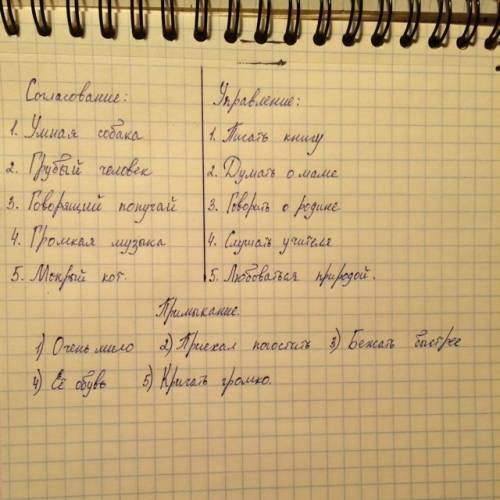 Согласование:
1. Умная собака
2. Грубый человек
3. Говорящий попугай
4. Громкая музыка
5. Мокрый кот.
Управление:
1. Писать книгу
2. Думать о маме
3. Говорить о родине
4. Слушать учителя
5. Любоваться природой.
Примыкание.
1) Очень мило 2) Приехал погостить 3) Бежать быстрее
4) Её обувь 5) Кричать громко.